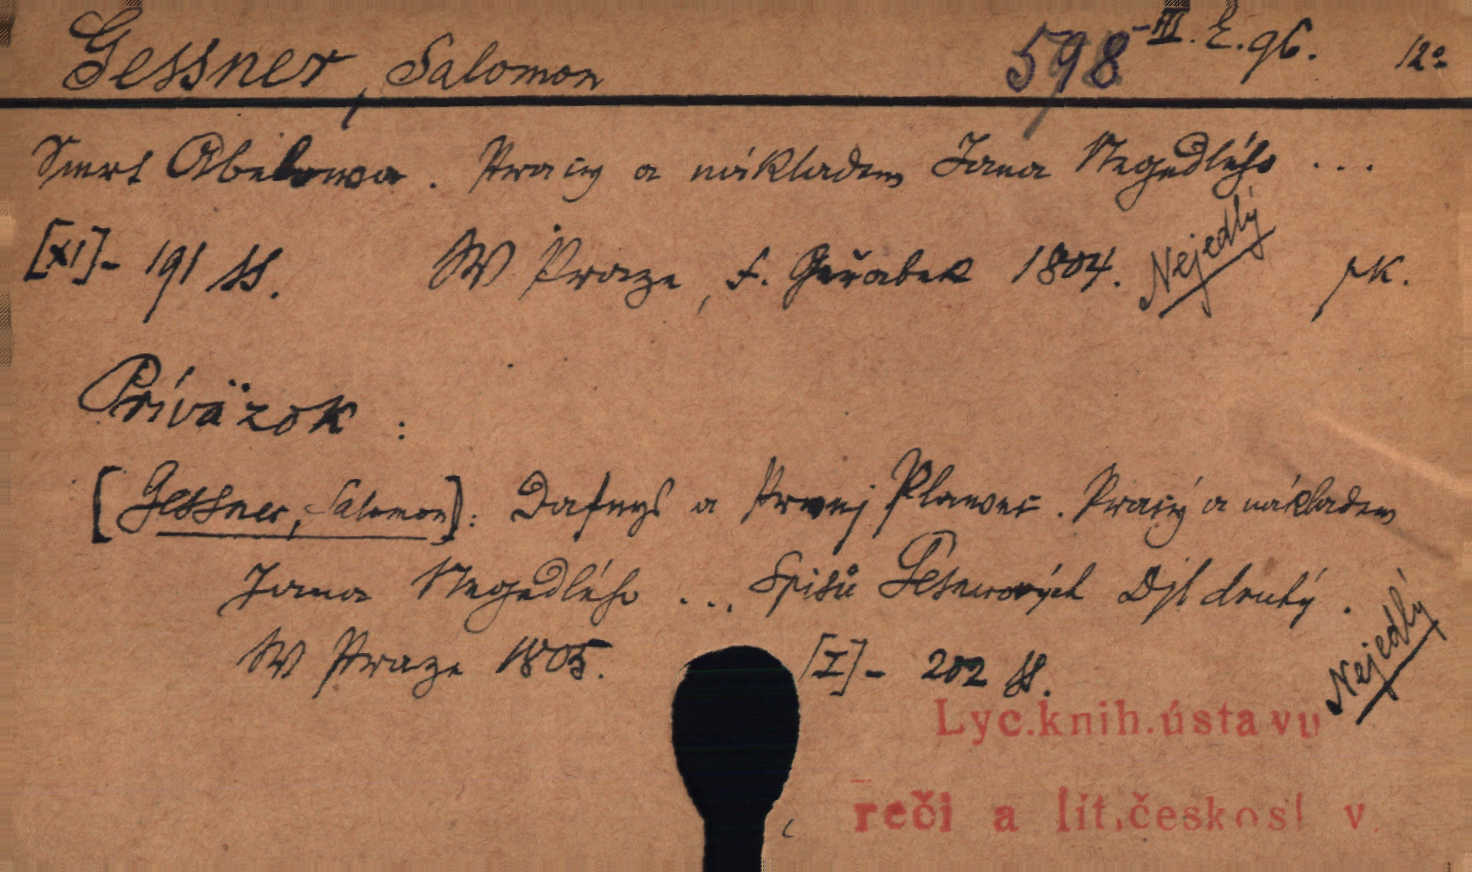 Gessner, Salomon 598-III. E. 96. 12°
Smrt Abelowa. Pracý a nákladem Jana Negedlého ...
[XI]- 191 ss. W Praze, F. Geřabek 1804. Nejedlý rk.
Príväzok :
[Gessner, Salomon]: Dafnys a Prwnj Plawec. Pracý a nákladem
Jana Negedlého ... Spisů Gesnerových Djl druhý.
W Praze 1805. [I]- 202 ss. Nejedlý
Lyc.knih.ústavu
reči a lit.českosl v.